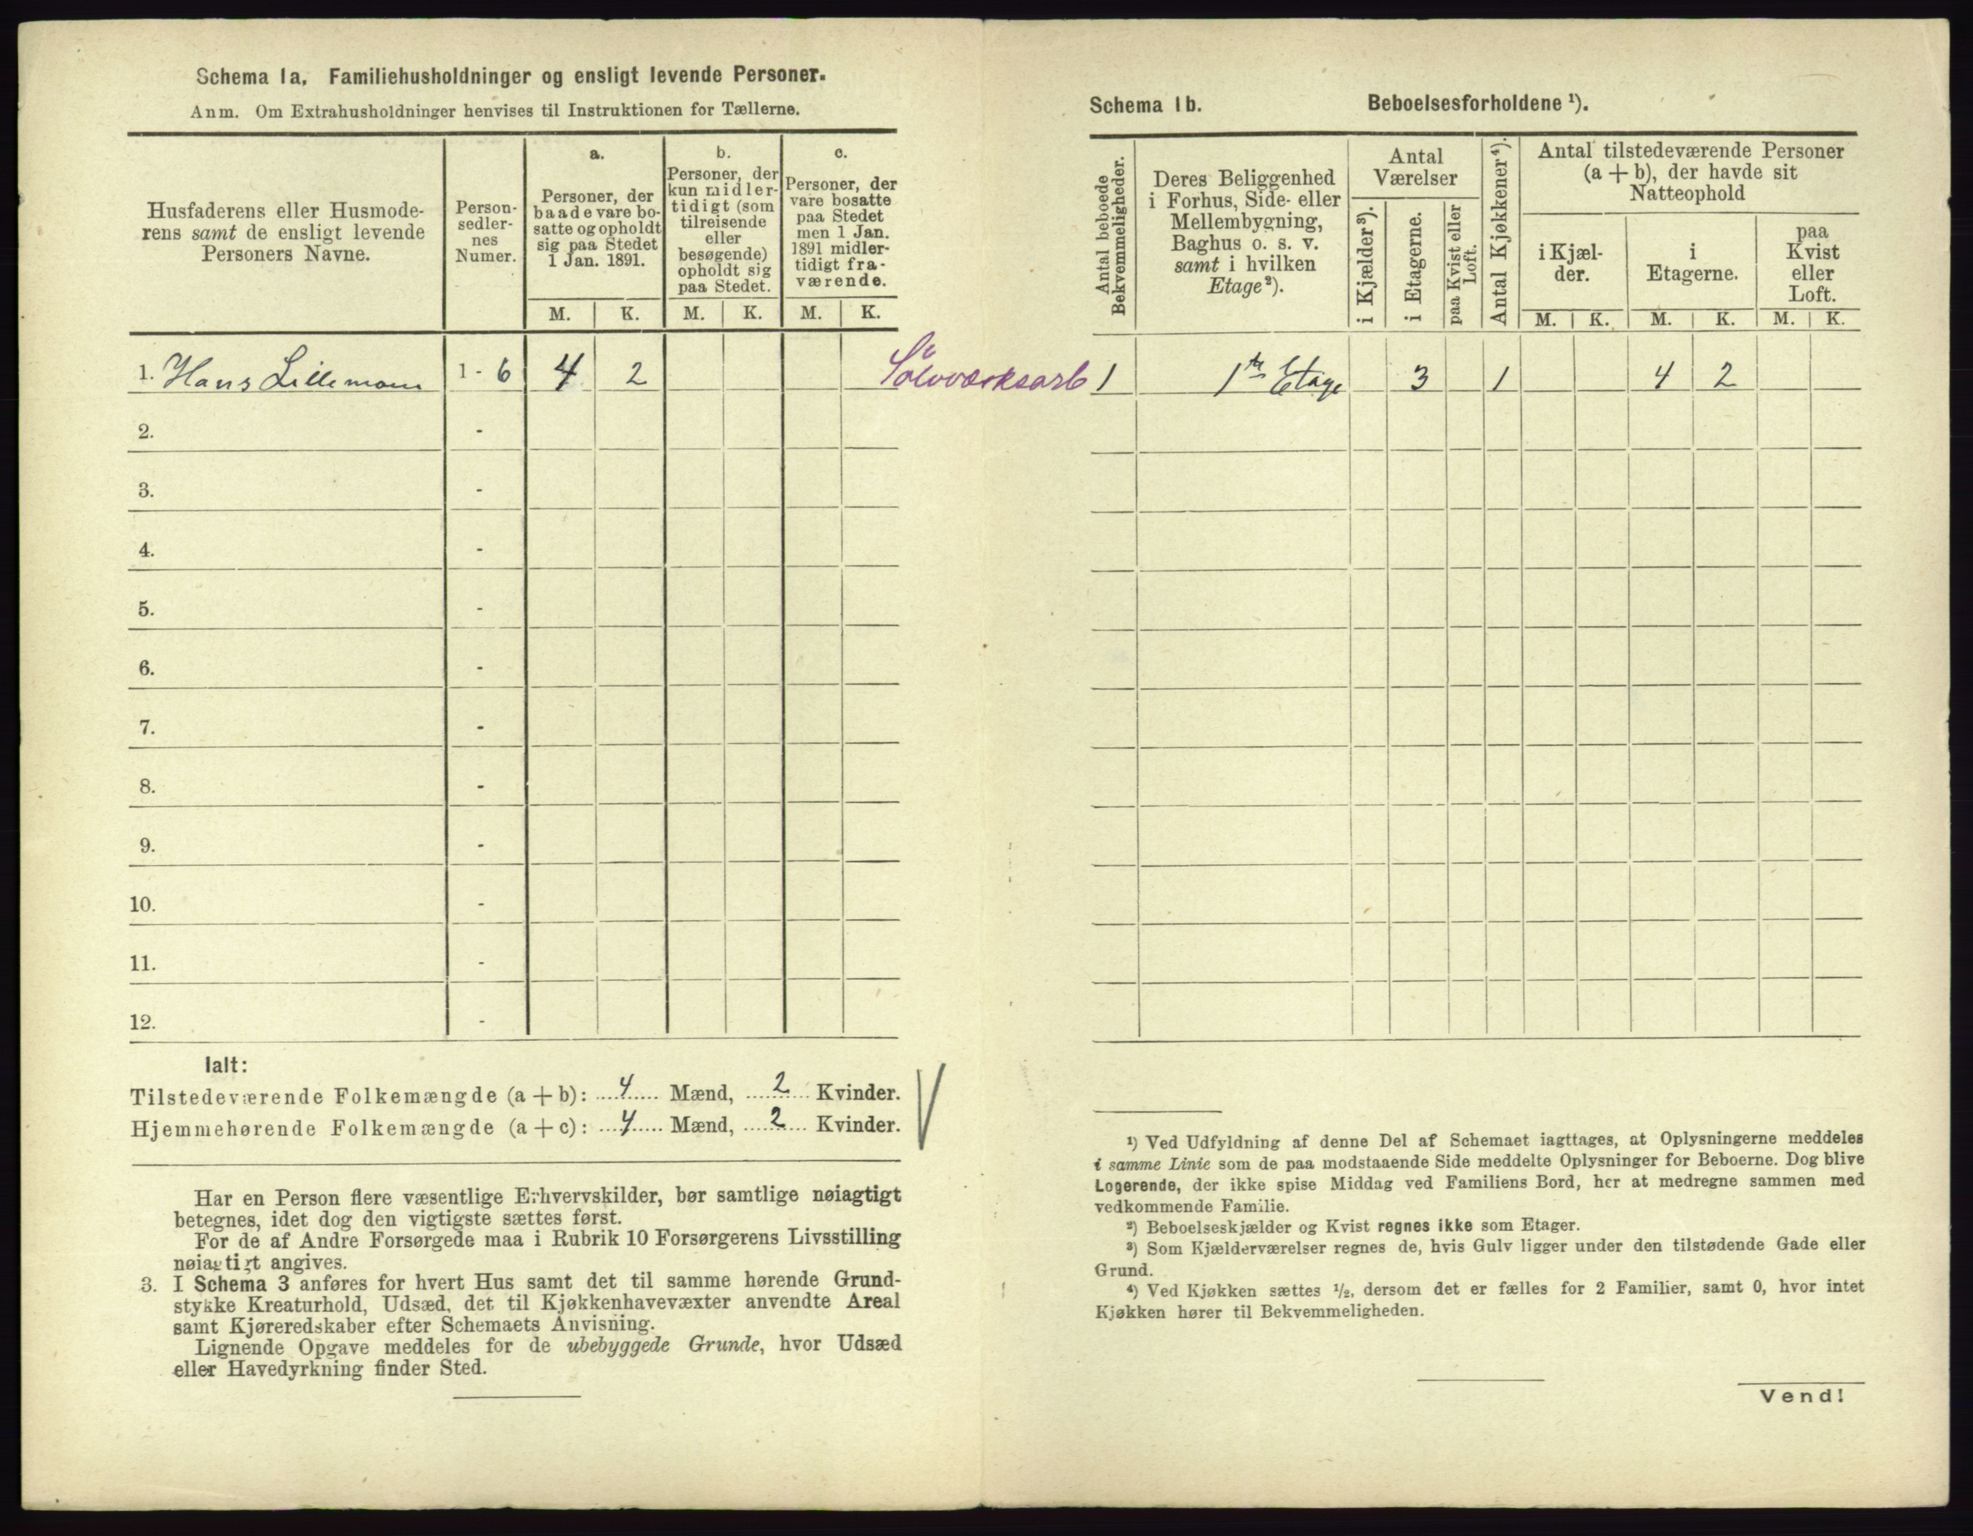 Schema 1a. Familiehusholdninger og ensligt levende Personer.
Anm. Om Extrahusholdninger henvises til Instruktionen for Tællerne.
Husfaderens eller Husmode-
rens samt de ensligt levende
Personers Navne.
Person-
sedler-
nes
Numer.
a.
Personer, der
baade vare bo-
satte og opholdt
sig paa Stedet
1 Jan. 1891.
b.
Personer, der
kun midler-
tidigt (som
tilreisende
eller
besøgende)
opholdt sig
paa Stedet.
c.
Personer, der
vare bosatte
paa Stedet
men 1 Jan.
1891 midler-
tidigt fra-
værende.
M. K. M. K. M. K.
1. Hans Lillemoen 1 - 6 4 2 Sølvværksarb
2. -
3. -
4. -
5. -
6. -
7. -
8. -
9. -
10. -
11. -
12. -
Ialt:
Tilstedeværende Folkemængde (a + b): 4 Mænd, 2 Kvinder.
Hjemmehørende Folkemængde (a + c): 4 Mænd, 2 Kvinder.
Har en Person flere væsentlige Erhvervskilder, bør samtlige nøiagtigt
betegnes, idet dog den vigtigste sættes først.
For de af Andre Forsørgede maa i Rubrik 10 Forsørgerens Livsstilling
nøiagtigt angives.
3. I Schema 3 anføres for hvert Hus samt det til samme hørende Grund-
stykke Kreaturhold, Udsæd, det til Kjøkkenhavevæxter anvendte Areal
samt Kjøreredskaber efter Schemaets Anvisning.
Lignende Opgave meddeles for de ubebyggede Grunde, hvor Udsæd
eller Havedyrkning finder Sted.
Schema 1b. Beboelsesforholdene ¹).
Antal beboede
Bekvemmeligheder.
Deres Beliggenhed
i Forhus, Side- eller
Mellembygning,
Baghus o. s. v.
samt i hvilken
Etage²).
Antal
Værelser
i Kjælder³).
i Etagerne.
paa Kvist eller
Loft.
Antal Kjøkkener⁴).
Antal tilstedeværende Personer
(a + b), der havde sit
Natteophold
i Kjæl-
der.
i
Etagerne.
paa
Kvist
eller
Loft.
M. K. M. K. M. K.
1 1ste Etage 3 1 4 2
¹) Ved Udfyldning af denne Del af Schemaet iagttages, at Oplysningerne meddeles
i samme Linie som de paa modstaaende Side meddelte Oplysninger for Beboerne. Dog blive
Logerende, der ikke spise Middag ved Familiens Bord, her at medregne sammen med
vedkommende Familie.
²) Beboelseskjælder og Kvist regnes ikke som Etager.
³) Som Kjælderværelser regnes de, hvis Gulv ligger under den tilstødende Gade eller
Grund.
⁴) Ved Kjøkken sættes ½, dersom det er fælles for 2 Familier, samt 0, hvor intet
Kjøkken hører til Bekvemmeligheden.
Vend!